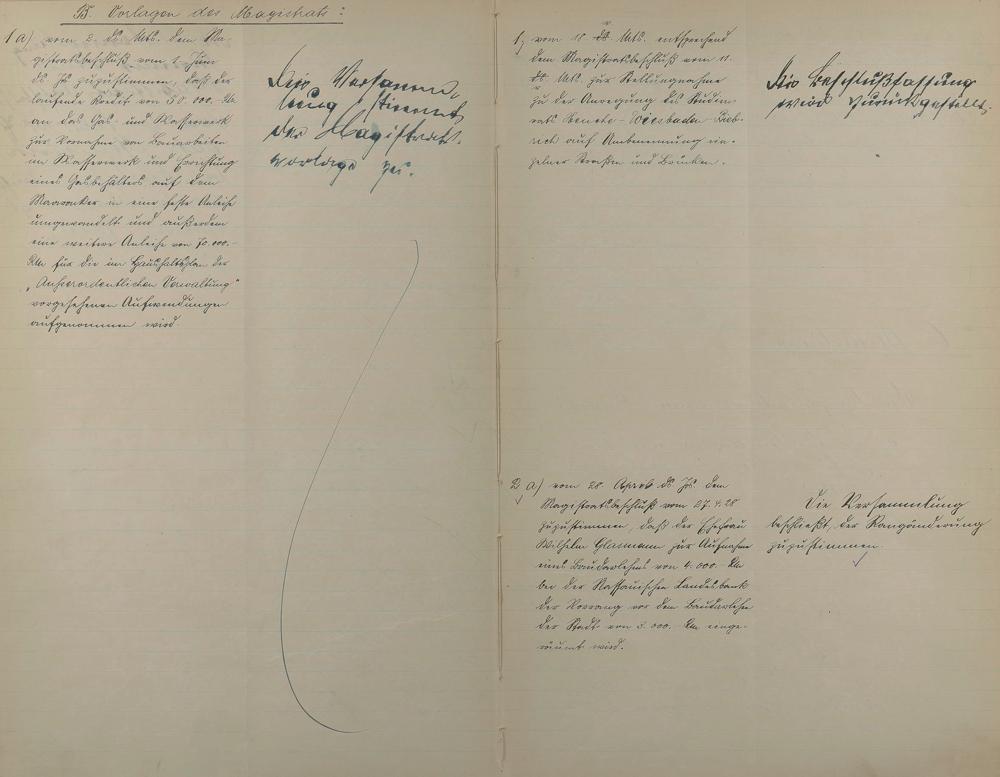 B. Vorlagen des Magistrats:
1 a) vom 2. ds. Mts. dem Ma-
gistratsbeschluß vom 2. Juni
ds Js zuzustimmen, daß der
laufende Kredit von 50.000.- RM
an das Gas- und Wasserwerk
zur Vornahme von Bauarbeiten
im Wasserwerk und Errichtung
eines Gasbehälters auf dem
in eine feste Anleihe
umgewandelt und außerdem
eine weitere Anleihe von 70.000.-
RM für die im Haushaltsplan der
"Außerordentlichen Verwaltung"
vorgesehenen Aufwendungen
aufgenommen wird.
Die Versamm-
lung stimmt
der Magistrats-
vorlage zu.
1, vom 18. ds. Mts. entsprechend
dem Magistratsbeschluß vom 11.
ds. Mts. zur Stellungnahme
zu der Anregung des
Wiesbaden-Bieb-
rich auf Umbenennung ein-
zelner Straßen und Brücken.
Die Beschlußfassung
wird zurückgestellt.
2 a) vom 28. April ds Js. dem
Magistratsbeschluß vom 27.4.28
zuzustimmen, daß der Ehefrau
Wilhelm Glasmann zur Aufnahme
eines Baudarlehens von 4.000.- RM
bei der Nassauischen Landesbank
der Vorrang vor dem Baudarlehen
der Stadt von 3.000.- RM einge-
räumt wird.
Die Versammlung
beschließt, der Rangänderung
zuzustimmen.